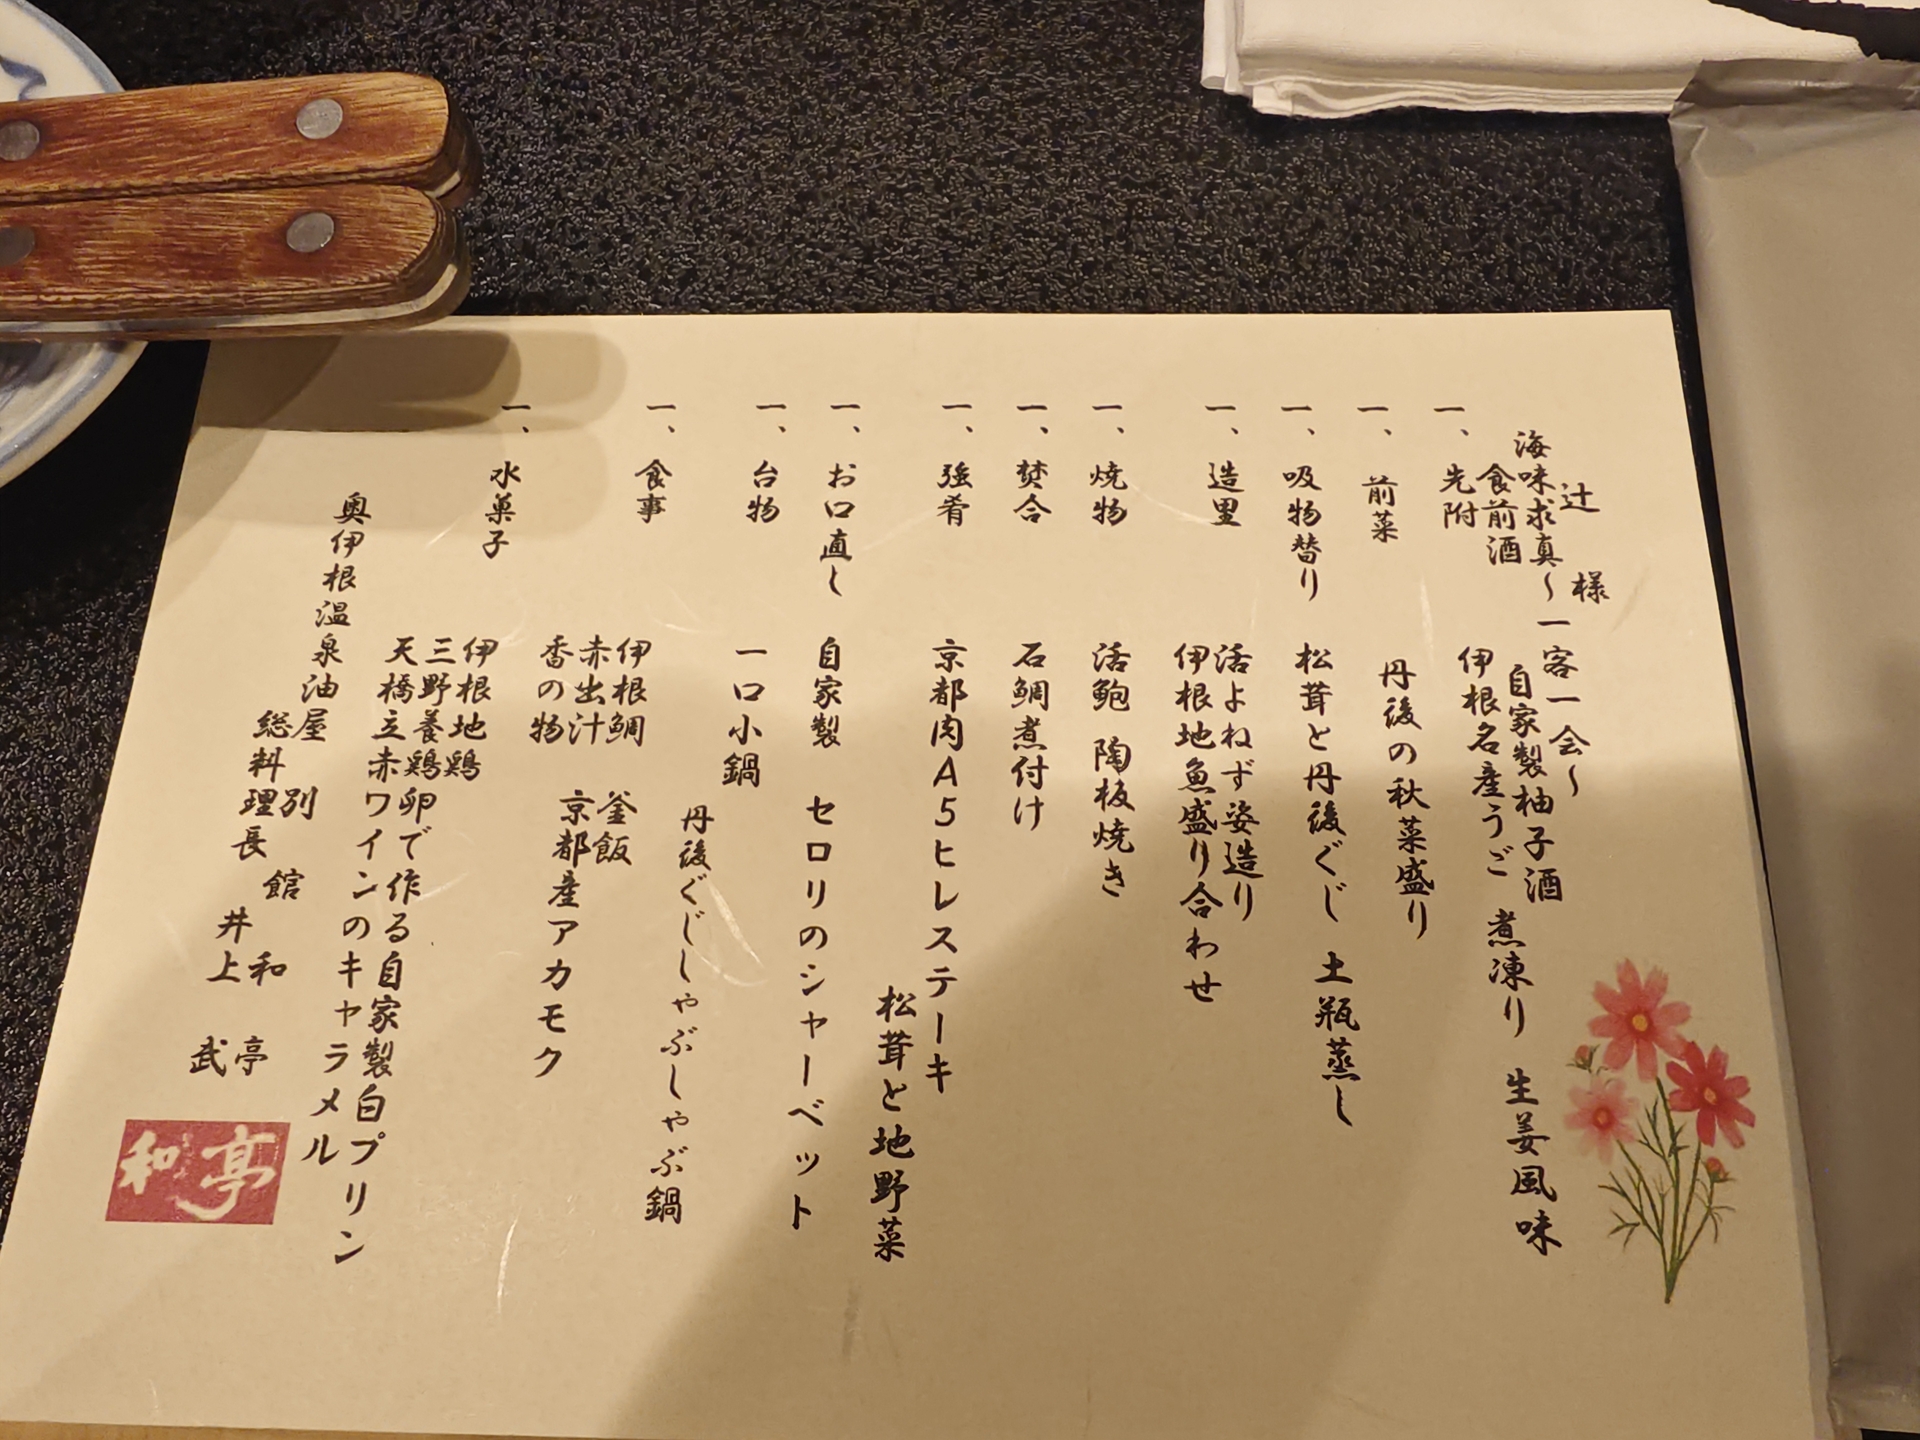 辻 様
海味求真～一客一会～
食前酒 自家製柚子酒
一、先附 伊根名産うご 煮凍り 生姜風味
一、前菜 丹後の秋菜盛り
一、吸物替り 松茸と丹後ぐじ 土瓶蒸し
一、造里 活よねず姿造り
伊根地魚盛り合わせ
一、焼物 活鮑 陶板焼き
一、焚合 石鯛煮付け
一、強肴 京都肉A5ヒレステーキ
松茸と地野菜
一、お口直し 自家製 セロリのシャーベット
一、台物 一口小鍋
丹後ぐじしゃぶしゃぶ鍋
一、食事 伊根鯛 釜飯
赤出汁 京都産アカモク
香の物
一、水菓子 伊根地鶏
三野養鶏卵で作る自家製白プリン
天橋立赤ワインのキャラメル
奥伊根温泉油屋 別館 和亭
総料理長 井上 武
和亭